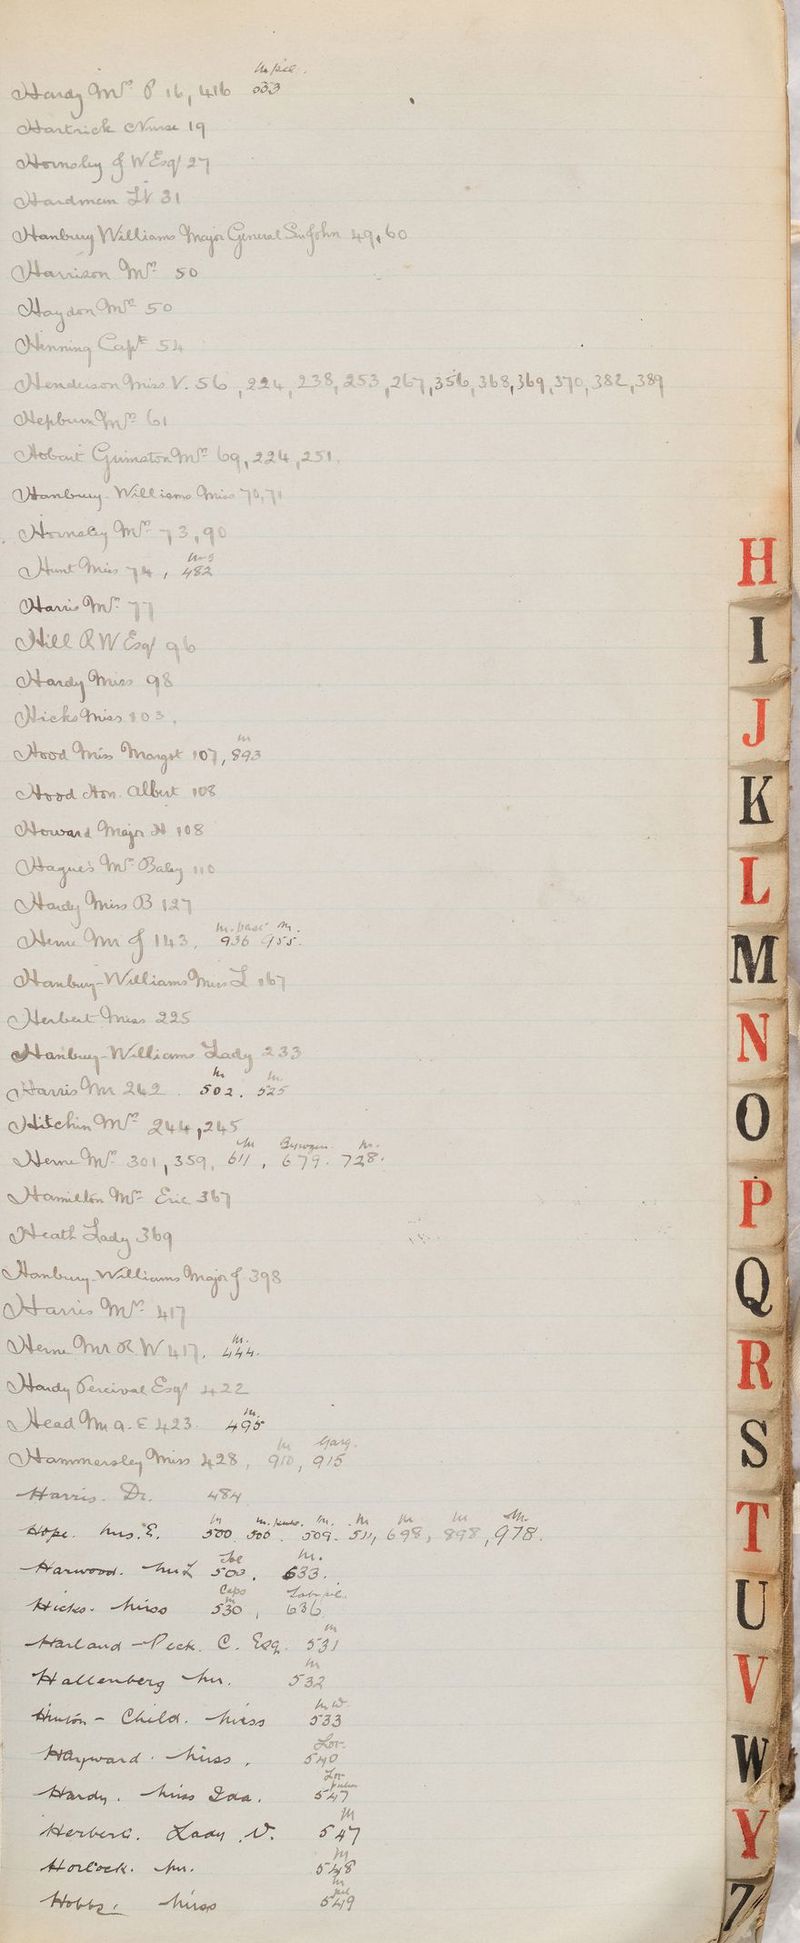 Hardy Mrs P 16, 416 533
Hartrick Nurse 19
Hornsley J W Esqr 27
Hardman Lt 31
Hanbury Williams Major General Sir John 49, 60
Harrison Mrs 50
Haydon Mrs 50
Henning Capt 54
Henderson Miss V. 56, 224, 238, 253, 267, 356, 368, 369, 370, 382, 389
Hepburn Mrs 61
Hobart Grimston Mrs 69, 224, 251.
Hanbury-Williams Miss 70, 71
Hornsley Mrs 73, 90
Hunt Miss 74, 482
Harris Mrs 77
Hill R W Esqr 96
Hardy Miss 98
Hicks Miss 103.
m
Hood Miss Margot 107, 893
Hood Hon. Albert 108
Howard Major H 108
Hague's Mrs Baby 110
Hardy Miss B 127
m. m.
Herne Mr J 143. 936 955.
Hanbury-Williams Miss L 167
Herbert Miss 225
Hanbury-Williams Lady 233
m m.
Harris Mr 242 502. 525
Hitchin Mrs 244, 245
m m.
Herne Mrs 301, 359, 611, 679. 728.
Hamilton Mrs Eric 367
Heath Lady 369
Hanbury-Williams Major J 398
Harris Mrs 417
m.
Herne Mr R. W 417. 444.
Hardy Percival Esqr 422
m.
Head Mr A. E 423. 495
m Marg.
Hammersley Miss 428, 910, 915
Harris. Dr. 484
m m. m. m m m m.
Hope. Mrs. E. 500 500. 509. 511, 698, 898, 978.
m.
Harwood. Mr L 503. 633.
Caps
Hicks. Miss 530, 636
m
Harland-Peck. C. Esq. 531
m
Hallenberg Mr. 532
m
Hinton-Child. Miss 533
Hayward. Miss. 540
Hardy. Miss Ida. 547
m
Herbert. Lady V. 547
m
Horlock. Mr. 548
m
Hobbs. Miss 549
H
I
J
K
L
M
N
O
P
Q
R
S
T
U
V
W
Y
Z